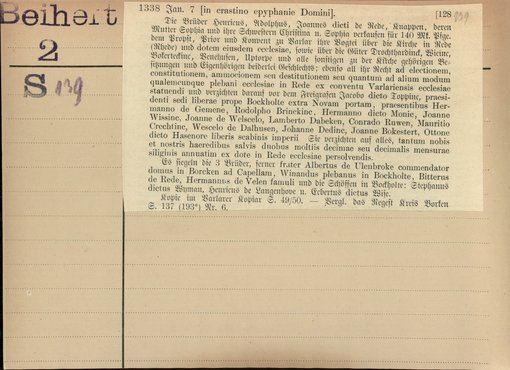 Beiheft
2
S 139
1338 Jan. 7 [in crastino epyphanie Domini]. [128 139
Die Brüder Henricus, Adolphus, Joannes dicti de Rede, Knappen, deren
Mutter Sophia und ihre Schwestern Christina u. Sophia verkaufen für 140 Mk. Pfge.
dem Propst, Prior und Konvent zu Varlar ihre Vogtei über die Kirche in Rede
(Rhede) und dotem eiusdem ecclesiae, sowie über die Güter Drochthardinck, Vicinc,
Bokertefine, Benehusen, Uptorpe und alle sonstigen zu der Kirche gehörigen Be-
sitzungen und Eigenhörigen beiderlei Geschlechts; ebenso all ihr Recht ad electionem,
constitutionem, ammocionem seu destitutionem seu quantum ad alium modum
qualemcunque plebani ecclesiae in Rede ex conventu Varlariensis ecclesiae
statuendi und verzichten darauf vor dem Freigrafen Jacobo dicto Toppinc, praesi-
denti sedi liberae prope Bockholte extra Novam portam, praesentibus Her-
manno de Gemene, Rodolpho Brinckinc, Hermanno dicto Monic, Joanne
Wissinc, Joanne de Welscelo, Lamberto Dabeken, Conrado Ruwen, Mauritio
Crechtinc, Wescelo de Dalhusen, Johanne Dedinc, Joanne Bokestert, Ottone
dicto Hasenore liberis scabinis imperii Sie verzichten auf alles, tantum nobis
et nostris haeredibus salvis duobus moltiis decimae seu decimalis mensurae
siliginis annuatim ex dote in Rede ecclesiae persolvendis.
Es siegeln die 3 Brüder, ferner frater Albertus de Ulenbroke commendator
domus in Borcken ad Capellam, Winandus plebanus in Bockholte, Bitterus
de Rede, Hermannus de Velen famuli und die Schöffen in Bockholte: Stephanus
dictus Wyman, Henricus de Langenhove u. Ecbertus dictus Wise.
Kopie im Varlarer Kopiar S. 49/50. — Vergl. das Regest Kreis Borken
S. 137 (193*) Nr. 6.